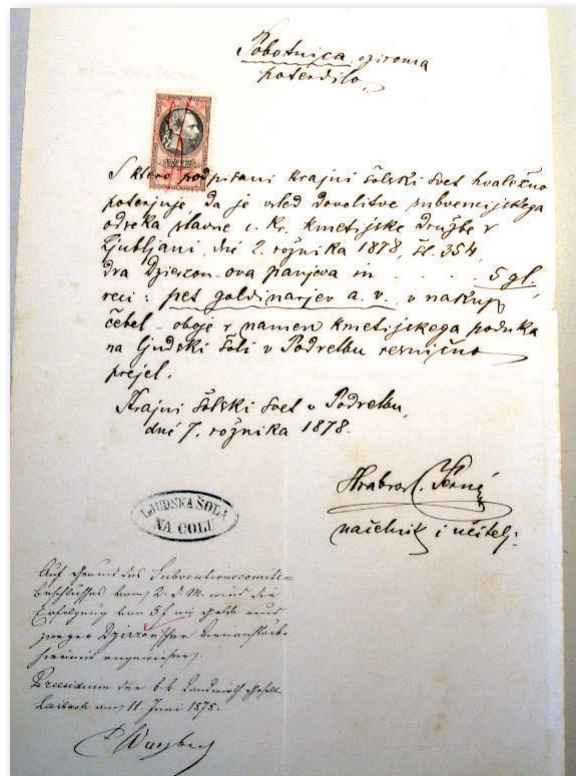 Pobotnica oziroma
poterdilo.
S ktero podpisani krajni šolski svet hvaležno
poterjuje da je vsled dovolitve subvencijskega
odseka slavne c. kr. kmetijske družbe v
Ljubljani, dné 2. rožnika 1878, šl. 354,
dva Dzierzon-ova panjova in . . . . . 5 gl.,
reci: pet goldinarjev a. v. v nakup
čebel - oboje v namen kmetijskega poduka
na ljudski šoli v Podvelbu resnično
prejel.
Krajni šolski svet v Podvelbu,
dné 7. rožnika 1878.
Hrabros
načelnik i učitelj.
LJUDSKA ŠOLA
NA COLU
Auf Grund des Subventionscomite-
Beschlusses vom 2. d. M. wird die
Erfolgung von 5 f
zweyer Dzierzon'scher Bienenstöcke
hiermit angewiesen.
Praesidium der k.k. Landwirth. Gesell.
Laibach am 11. Juni 1878.
Wurzbach